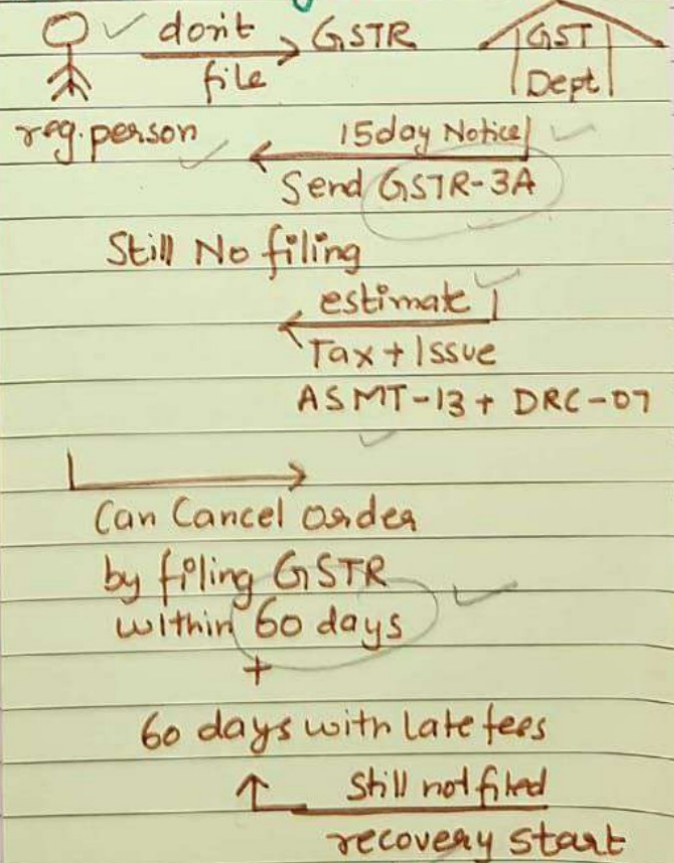 don't GSTR GST
file Dept
reg.person 15day Notice
Send GSTR-3A
Still No filing
estimate
Tax + Issue
ASMT-13 + DRC-07
Can Cancel order
by filing GSTR
within 60 days
+
60 days with late fees
Still not filed
recovery start